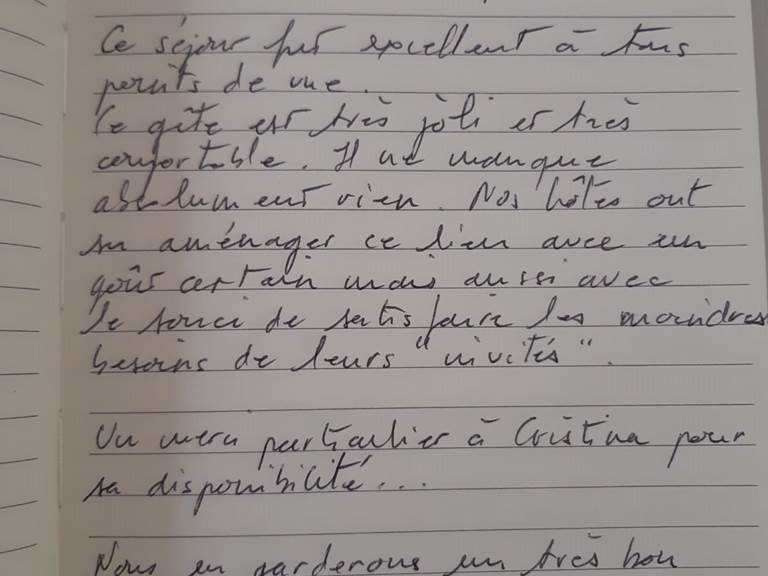 Ce séjour fut excellent à tous
points de vue.
Ce gîte est très joli et très
confortable. Il ne manque
absolument rien. Nos hôtes ont
su aménager ce lieu avec un
goût certain mais aussi avec
le souci de satisfaire les moindres
besoins de leurs "invités".
Un merci particulier à Cristina pour
sa disponibilité...
Nous en garderons un très bon